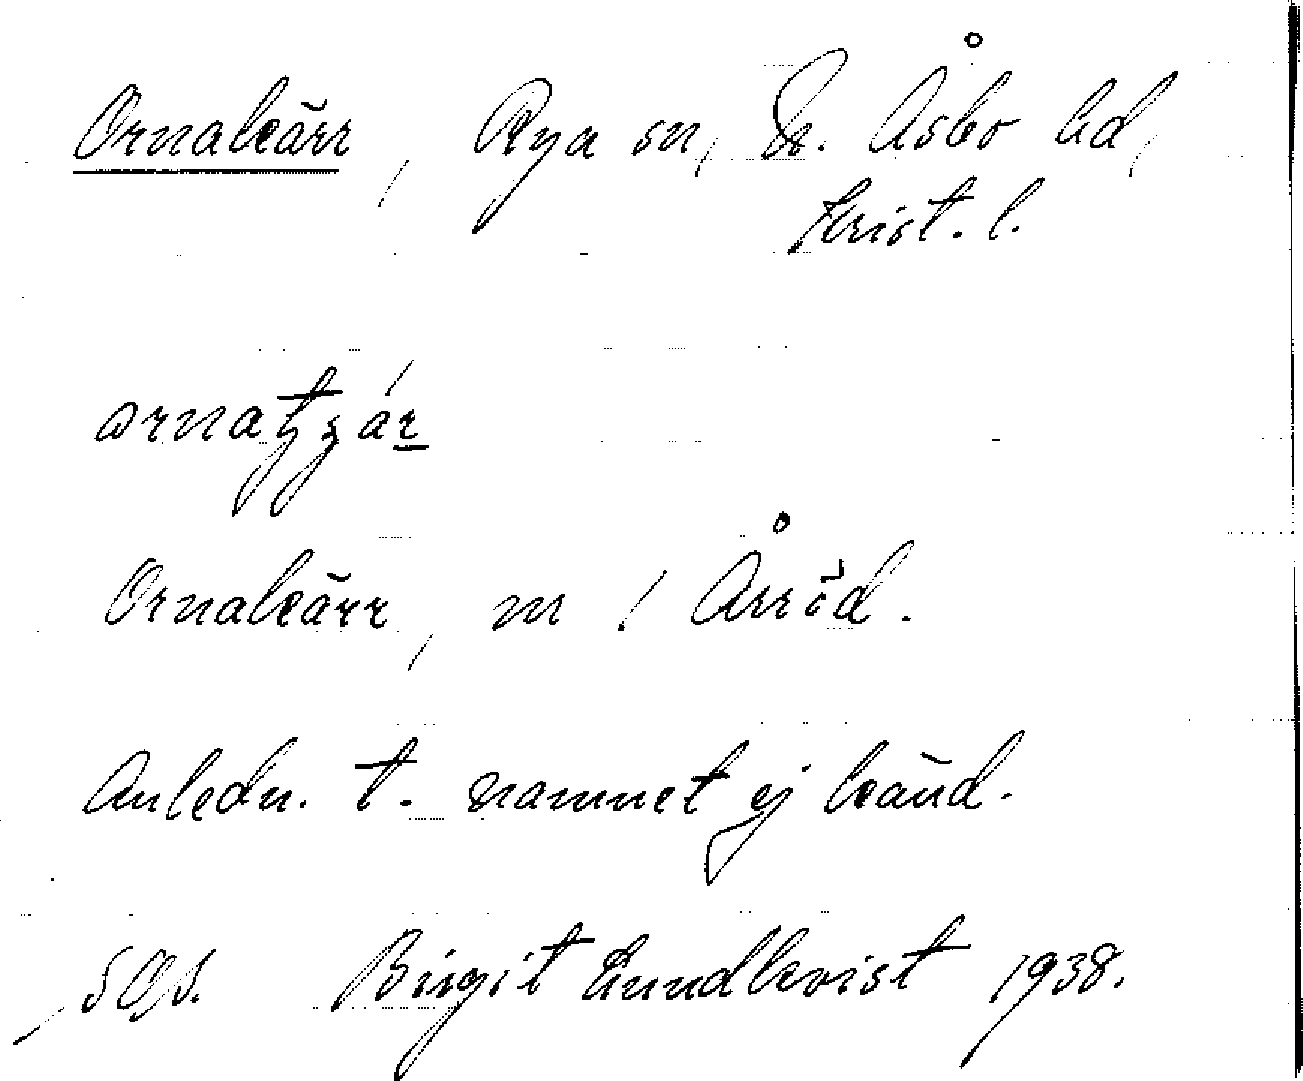 Ornakärr, Rya sn, N. Åsbo hd,
Krist. l.
Ornakärr, m / Årröd.
Anledn. t. namnet ej känd.
Birgit Lundkvist 1938.